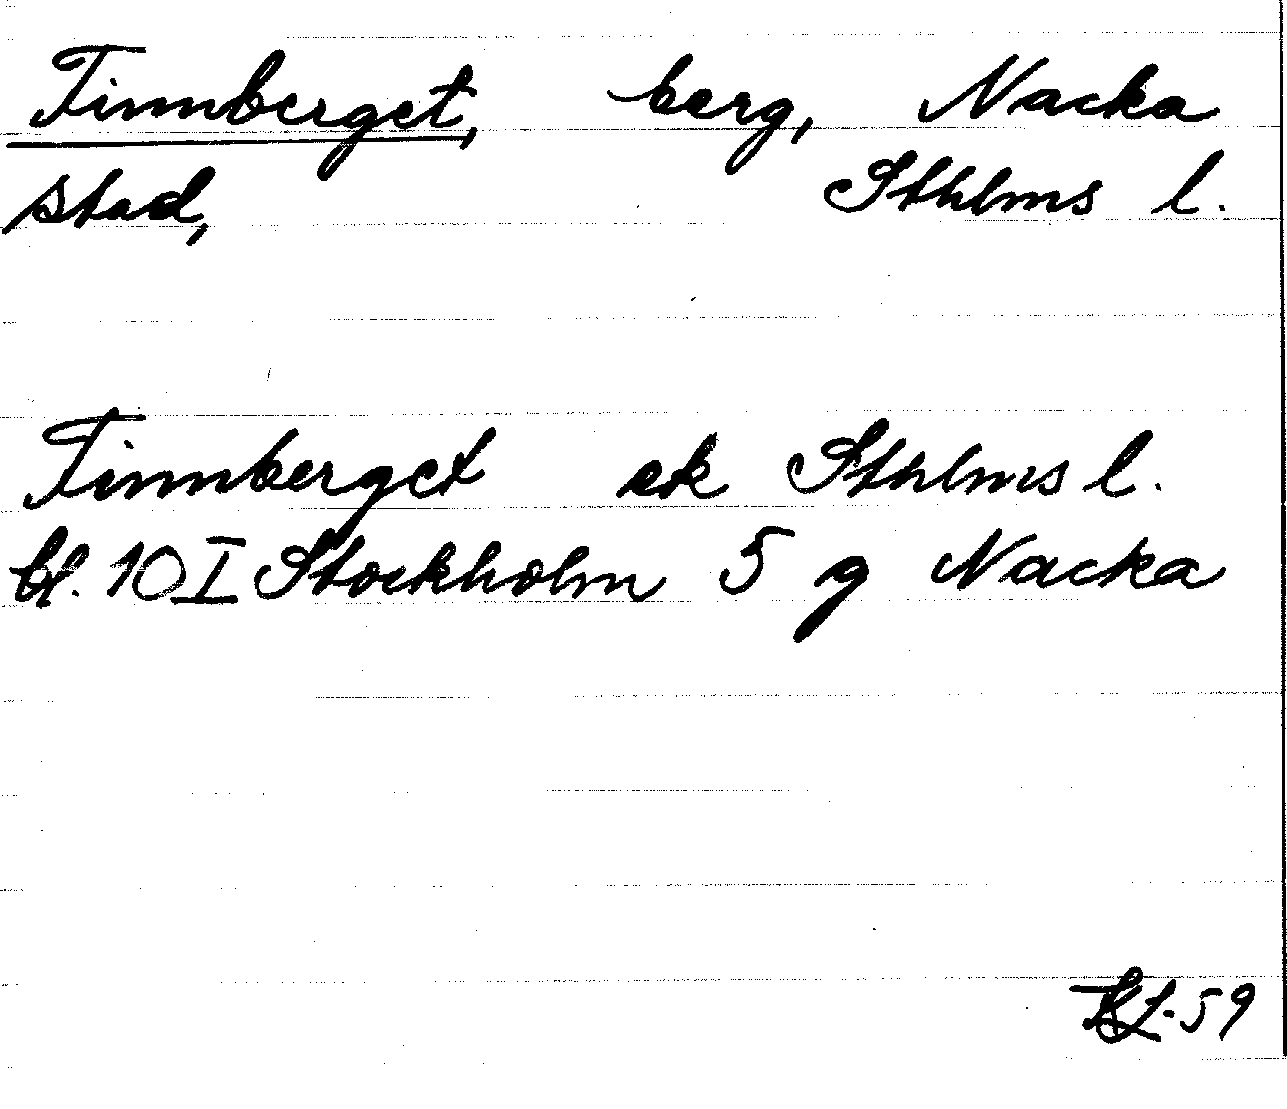 Finnberget, berg, Nacka
stad, Sthlms l.
Finnberget ek Sthlms l.
bl. 10 I Stockholm 5 g Nacka
-59